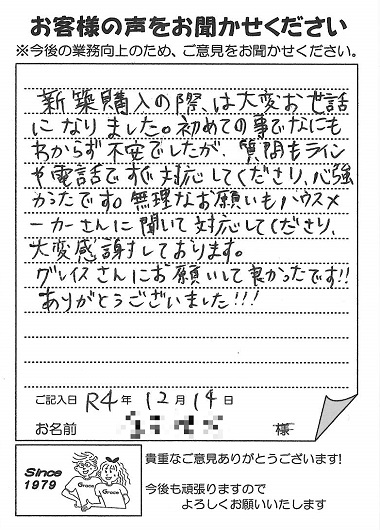 お客様の声をお聞かせください
※今後の業務向上のため、ご意見をお聞かせください。
新築購入の際は大変お世話
になりました。初めての事でなにも
わからず不安でしたが、質問もライン
や電話ですぐ対応してくださり、心強
かったです。無理なお願いもハウスメ
ーカーさんに聞いて対応してくださり、
大変感謝しております。
グレイスさんにお願いして良かったです!!
ありがとうございました!!!
ご記入日 R4年 12月 14日
お名前 様
Since
1979
Grace
Grace
貴重なご意見ありがとうございます!
今後も頑張りますので
よろしくお願いいたします